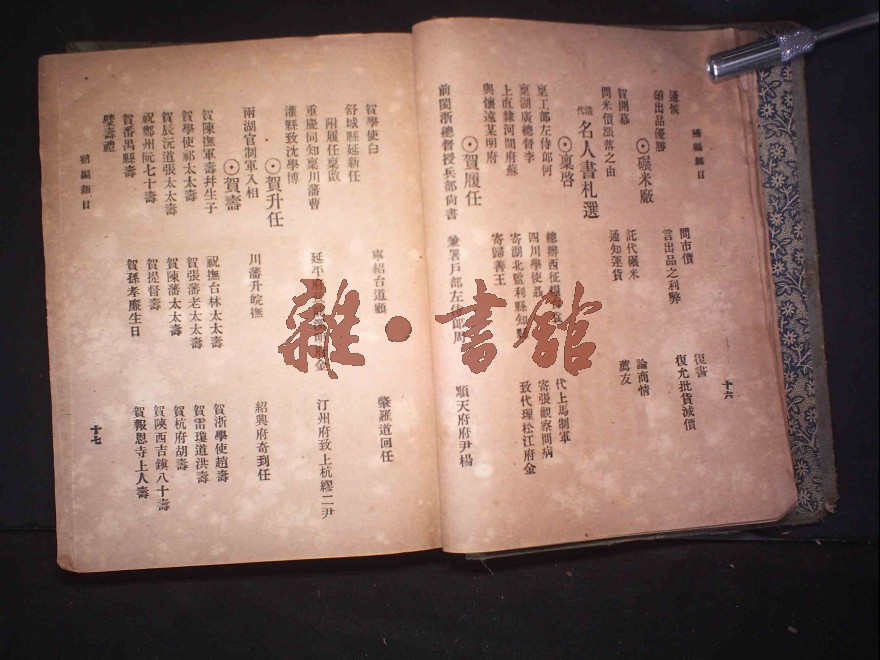 補編細目
十六
通候
問市價
復書
頌出品優勝
言出品之利弊
復允批貨減價
⊙碾米廠
賀開幕
託代碾米
論商情
問米價漲落之由
通知運貨
薦友
清代名人書札選
⊙稟啓
稟工部左侍郎何
總辦西征糧
代上馬制軍
稟湖廣總督李
四川學使
寄張觀察問病
上直隸河間府蘇
寄湖北監利縣知
致代理松江府金
與懷遠某明府
寄歸善王
⊙賀履任
前閩浙總督授兵部尙書
兼署戶部左侍郎周
順天府府尹楊
賀學使白
寧紹台道顧
肇羅道回任
舒城縣延新任
附履任稟啟
重慶同知稟川藩曹
延平府
汀州府致上杭繆二尹
灌縣致沈學博
⊙賀升任
兩湖官制軍入相
川藩升皖撫
紹興府寄到任
⊙賀壽
賀陳撫軍壽幷生子
祝撫台林太太壽
賀浙學使趙壽
賀學使祁太太壽
賀張藩老太太壽
賀雷瓊道洪壽
賀辰沅道張太太壽
賀陳藩太太壽
賀杭府胡壽
祝鄭州阮七十壽
賀提督壽
賀陝西吉鎮八十壽
賀番禺縣壽
賀孫孝廉生日
賀報恩寺上人壽
璧壽禮
補編細目
十七
雜·書館